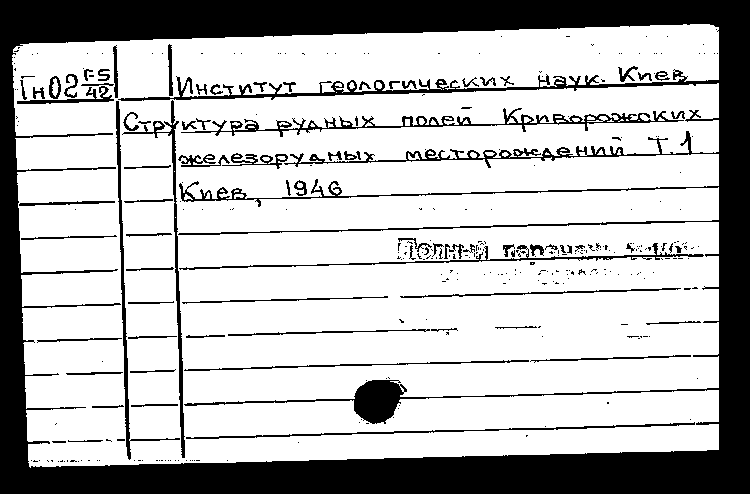 Гн02 F-5/42 Институт геологических наук. Киев.
Структура рудных полей Криворожских
железорудных месторождений Т.1
Киев, 1946
Полный перечень